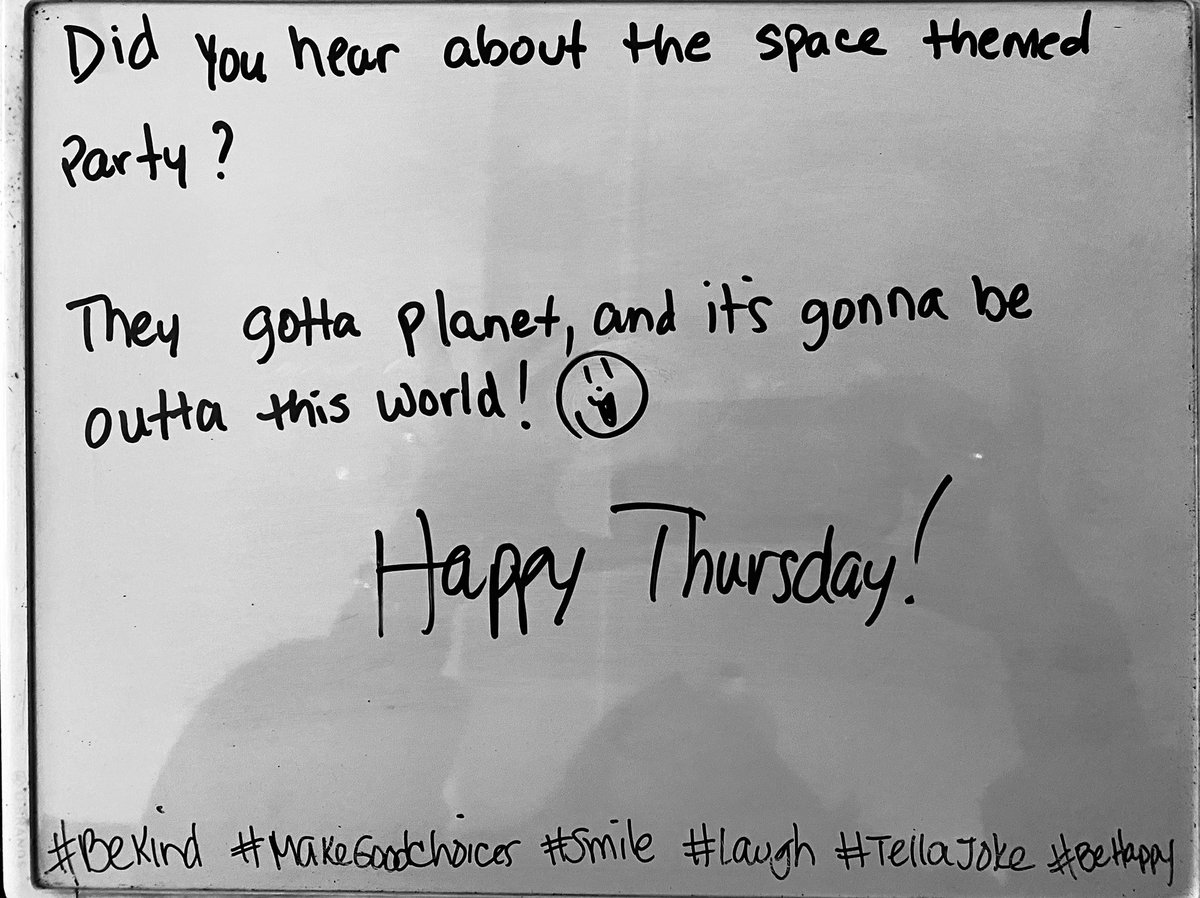 Did you hear about the space themed
Party?
They gotta planet, and it's gonna be
outta this world!
Happy Thursday!
#BeKind #MakeGoodChoices #Smile #Laugh #TellaJoke #BeHappy